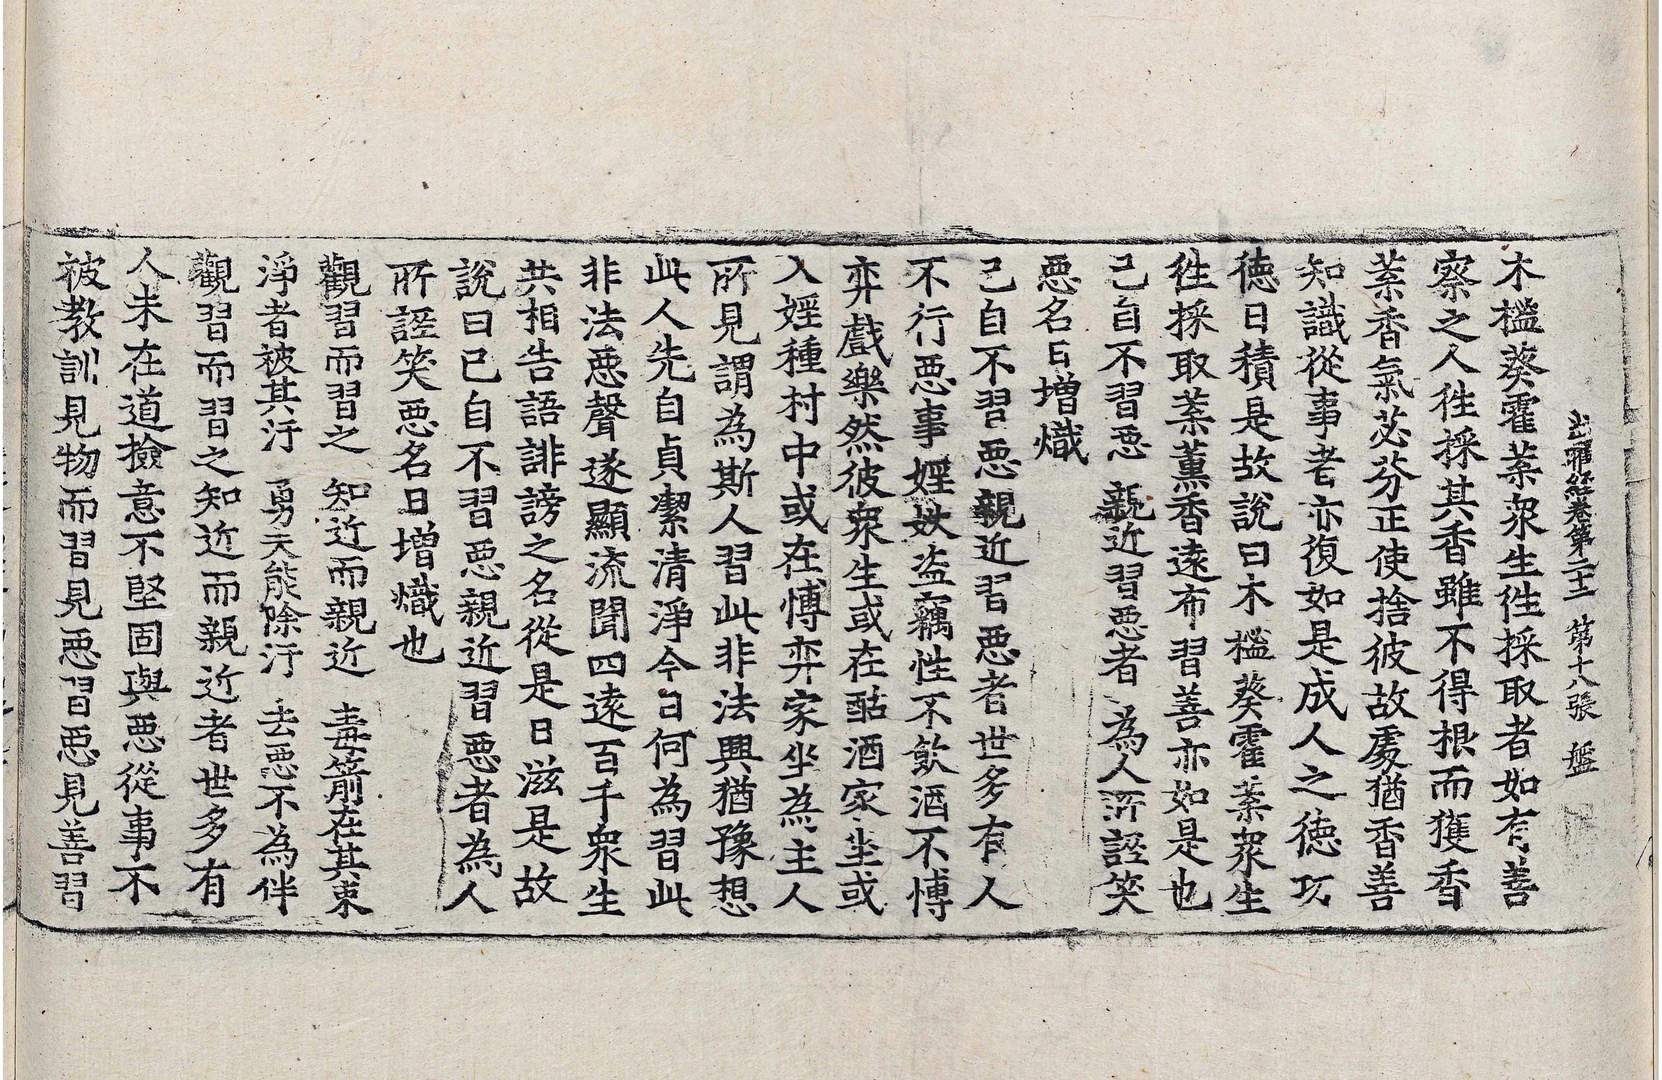 出曜經卷第二十二 第十八張 盤
木櫁葵霍葉衆生徃採取者如有善
察之人徃採其香雖不得根而獲香
葉香氣苾芬正使捨彼故處猶香善
知識從事者亦復如是成人之德功
德日積是故說曰木櫁葵霍葉衆生
徃採取葉薰香遠布習善亦如是也
己自不習惡 親近習惡者 為人所誣笑
惡名日增熾
己自不習惡親近習惡者世多有人
不行惡事婬妷盗竊性不飲酒不愽
弈戲樂然彼衆生或在酤酒家坐或
入婬種村中或在愽弈家坐為主人
所見謂為斯人習此非法興猶豫想
此人先自貞潔清淨今日何為習此
非法惡聲遂顯流聞四遠百千衆生
共相告語誹謗之名從是日滋是故
說曰已自不習惡親近習惡者為人
所誣笑惡名日增熾也
觀習而習之 知近而親近 毒箭在其束
淨者被其汙 勇夫能除汙 去惡不為伴
觀習而習之知近而親近者世多有
人未在道撿意不堅固與惡從事不
被教訓見物而習見惡習惡見善習